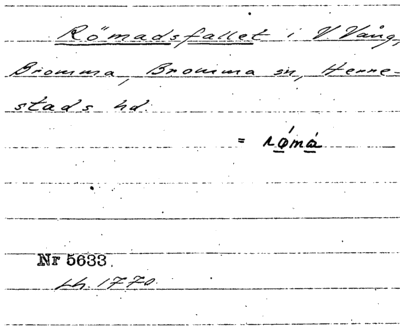 Römadsfallet i V Vång,
Bromma, Bromma sn, Herre-
stads hd.
= rómá
Nr 5633.
Lh. 1770.